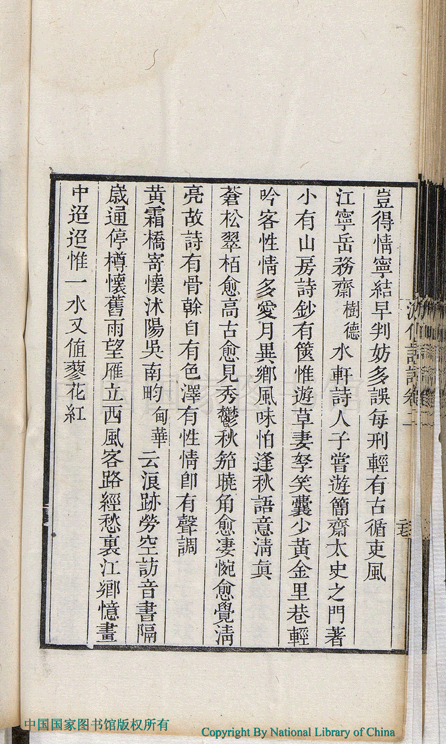 豈得情寧結早判妨多誤每刑輕有古循吏風
江寧岳務齋樹德水軒詩人子嘗遊簡齋太史之門著
小有山房詩鈔有篋惟遊草妻孥笑囊少黃金里巷輕
吟客性情多愛月異鄉風味怕逢秋語意淸眞
蒼松翠栢愈高古愈見秀鬱秋笳曉角愈凄惋愈覺淸
亮故詩有骨榦自有色澤有性情卽有聲調
黃霜橋寄懷沭陽吳南畇甸華云浪跡勞空訪音書隔
歲通停樽懷舊雨望雁立西風客路經愁裏江鄉憶畫
中迢迢惟一水又値蓼花紅
中国国家图书馆版权所有
Copyright By National Library of China